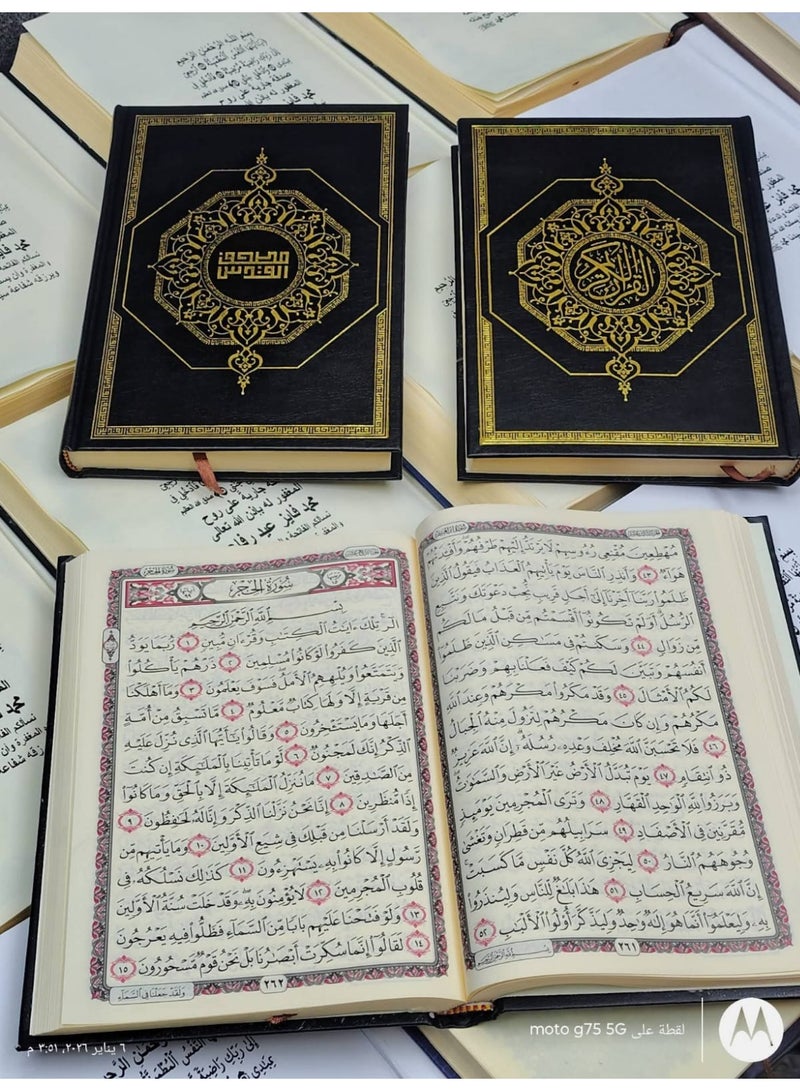 بسم الله الرحمن الرحيم
مصحف
القدس
القرآن الكريم
صدقة جارية على روح
المغفور له بإذن الله تعالى
محمد فايز عبد
نسألكم الفاتحة
مُهْطِعِينَ مُقْنِعِي رُءُوسِهِمْ لَا يَرْتَدُّ إِلَيْهِمْ طَرْفُهُمْ
هَوَاءٌ ٤٣ وَأَنذِرِ النَّاسَ يَوْمَ يَأْتِيهِمُ الْعَذَابُ فَيَقُولُ الَّذِينَ
ظَلَمُوا رَبَّنَا أَخِّرْنَا إِلَىٰ أَجَلٍ قَرِيبٍ نُّجِبْ دَعْوَتَكَ وَنَتَّبِعِ
الرُّسُلَ أَوَلَمْ تَكُونُوا أَقْسَمْتُم مِّن قَبْلُ مَا لَكُم
مِّن زَوَالٍ ٤٤ وَسَكَنتُمْ فِي مَسَٰكِنِ الَّذِينَ ظَلَمُوا
أَنفُسَهُمْ وَتَبَيَّنَ لَكُمْ كَيْفَ فَعَلْنَا بِهِمْ وَضَرَبْنَا
لَكُمُ الْأَمْثَالَ ٤٥ وَقَدْ مَكَرُوا مَكْرَهُمْ وَعِندَ اللَّهِ
مَكْرُهُمْ وَإِن كَانَ مَكْرُهُمْ لِتَزُولَ مِنْهُ الْجِبَالُ
٤٦ فَلَا تَحْسَبَنَّ اللَّهَ مُخْلِفَ وَعْدِهِ رُسُلَهُ إِنَّ اللَّهَ عَزِيزٌ
ذُو انتِقَامٍ ٤٧ يَوْمَ تُبَدَّلُ الْأَرْضُ غَيْرَ الْأَرْضِ وَالسَّمَٰوَٰتُ
وَبَرَزُوا لِلَّهِ الْوَٰحِدِ الْقَهَّارِ ٤٨ وَتَرَى الْمُجْرِمِينَ يَوْمَئِذٍ
مُّقَرَّنِينَ فِي الْأَصْفَادِ ٤٩ سَرَابِيلُهُم مِّن قَطِرَانٍ وَتَغْشَىٰ
وُجُوهَهُمُ النَّارُ ٥٠ لِيَجْزِيَ اللَّهُ كُلَّ نَفْسٍ مَّا كَسَبَتْ
إِنَّ اللَّهَ سَرِيعُ الْحِسَابِ ٥١ هَٰذَا بَلَٰغٌ لِّلنَّاسِ وَلِيُنذَرُوا
بِهِ وَلِيَعْلَمُوا أَنَّمَا هُوَ إِلَٰهٌ وَٰحِدٌ وَلِيَذَّكَّرَ أُولُوا الْأَلْبَٰبِ ٥٢
٢٦١
سُورَةُ الْحِجْرِ
سُورَةُ الْحِجْرِ
بِسْمِ اللَّهِ الرَّحْمَٰنِ الرَّحِيمِ
الر تِلْكَ ءَايَٰتُ الْكِتَٰبِ وَقُرْءَانٍ مُّبِينٍ ١ رُّبَمَا يَوَدُّ
الَّذِينَ كَفَرُوا لَوْ كَانُوا مُسْلِمِينَ ٢ ذَرْهُمْ يَأْكُلُوا
وَيَتَمَتَّعُوا وَيُلْهِهِمُ الْأَمَلُ فَسَوْفَ يَعْلَمُونَ ٣ وَمَا أَهْلَكْنَا
مِن قَرْيَةٍ إِلَّا وَلَهَا كِتَابٌ مَّعْلُومٌ ٤ مَّا تَسْبِقُ مِنْ أُمَّةٍ
أَجَلَهَا وَمَا يَسْتَـْٔخِرُونَ ٥ وَقَالُوا يَٰأَيُّهَا الَّذِي نُزِّلَ عَلَيْهِ
الذِّكْرُ إِنَّكَ لَمَجْنُونٌ ٦ لَّوْ مَا تَأْتِينَا بِالْمَلَٰئِكَةِ إِن كُنتَ
مِنَ الصَّٰدِقِينَ ٧ مَا نُنَزِّلُ الْمَلَٰئِكَةَ إِلَّا بِالْحَقِّ وَمَا كَانُوا
إِذًا مُّنظَرِينَ ٨ إِنَّا نَحْنُ نَزَّلْنَا الذِّكْرَ وَإِنَّا لَهُ لَحَٰفِظُونَ ٩
وَلَقَدْ أَرْسَلْنَا مِن قَبْلِكَ فِي شِيَعِ الْأَوَّلِينَ ١٠ وَمَا يَأْتِيهِم مِّن
رَّسُولٍ إِلَّا كَانُوا بِهِ يَسْتَهْزِءُونَ ١١ كَذَٰلِكَ نَسْلُكُهُ فِي
قُلُوبِ الْمُجْرِمِينَ ١٢ لَا يُؤْمِنُونَ بِهِ وَقَدْ خَلَتْ سُنَّةُ الْأَوَّلِينَ
١٣ وَلَوْ فَتَحْنَا عَلَيْهِم بَابًا مِّنَ السَّمَاءِ فَظَلُّوا فِيهِ يَعْرُجُونَ
١٤ لَقَالُوا إِنَّمَا سُكِّرَتْ أَبْصَٰرُنَا بَلْ نَحْنُ قَوْمٌ مَّسْحُورُونَ ١٥
٢٦٢
لقطة على moto g75 5G
٦ يناير ٢٠٢٦، ٣:٥١ م